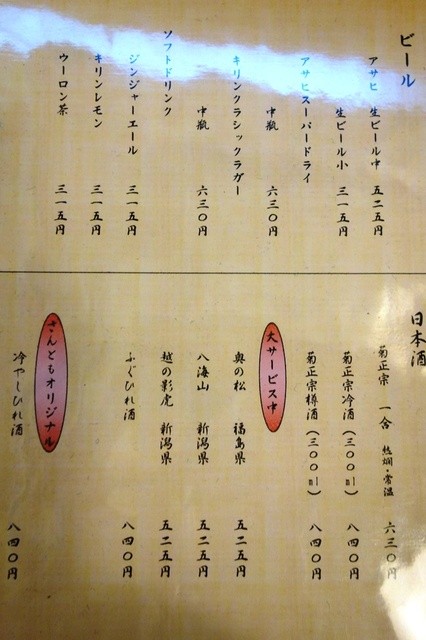 ビール
アサヒ 生ビール中 五二五円
生ビール小 三一五円
アサヒスーパードライ
中瓶 六三〇円
キリンクラシックラガー
中瓶 六三〇円
ソフトドリンク
ジンジャーエール 三一五円
キリンレモン 三一五円
ウーロン茶 三一五円
日本酒
菊正宗 一合 熱燗・常温 六三〇円
菊正宗冷酒(三〇〇ml) 八四〇円
菊正宗樽酒(三〇〇ml) 八四〇円
大サービス中
奥の松 福島県 五二五円
八海山 新潟県 五二五円
越の影虎 新潟県 五二五円
ふぐひれ酒 八四〇円
さんともオリジナル
冷やしひれ酒 八四〇円